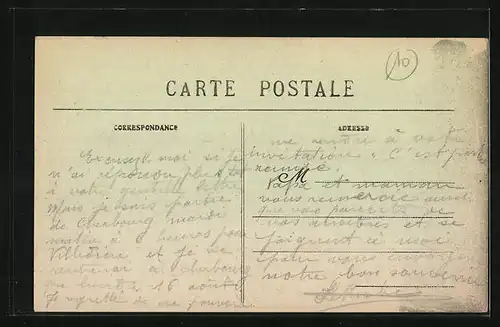 10
CARTE POSTALE
CORRESPONDANCE
ADRESSE
Excusez moi si je
n'ai répondu plus tôt
à votre gentille lettre
Mais je suis partie
de Cherbourg mardi
matin à 6 heures pour
Villedieu et je ne
rentrerai à Cherbourg
que 16 août
Je regrette de ne pouvoir
me rendre à votre
invitation. C'est partie
remise.
M
Papa et maman
vous remercie ainsi
que vos parents
et se
joignent à moi
pour vous envoyer
notre bon souvenir